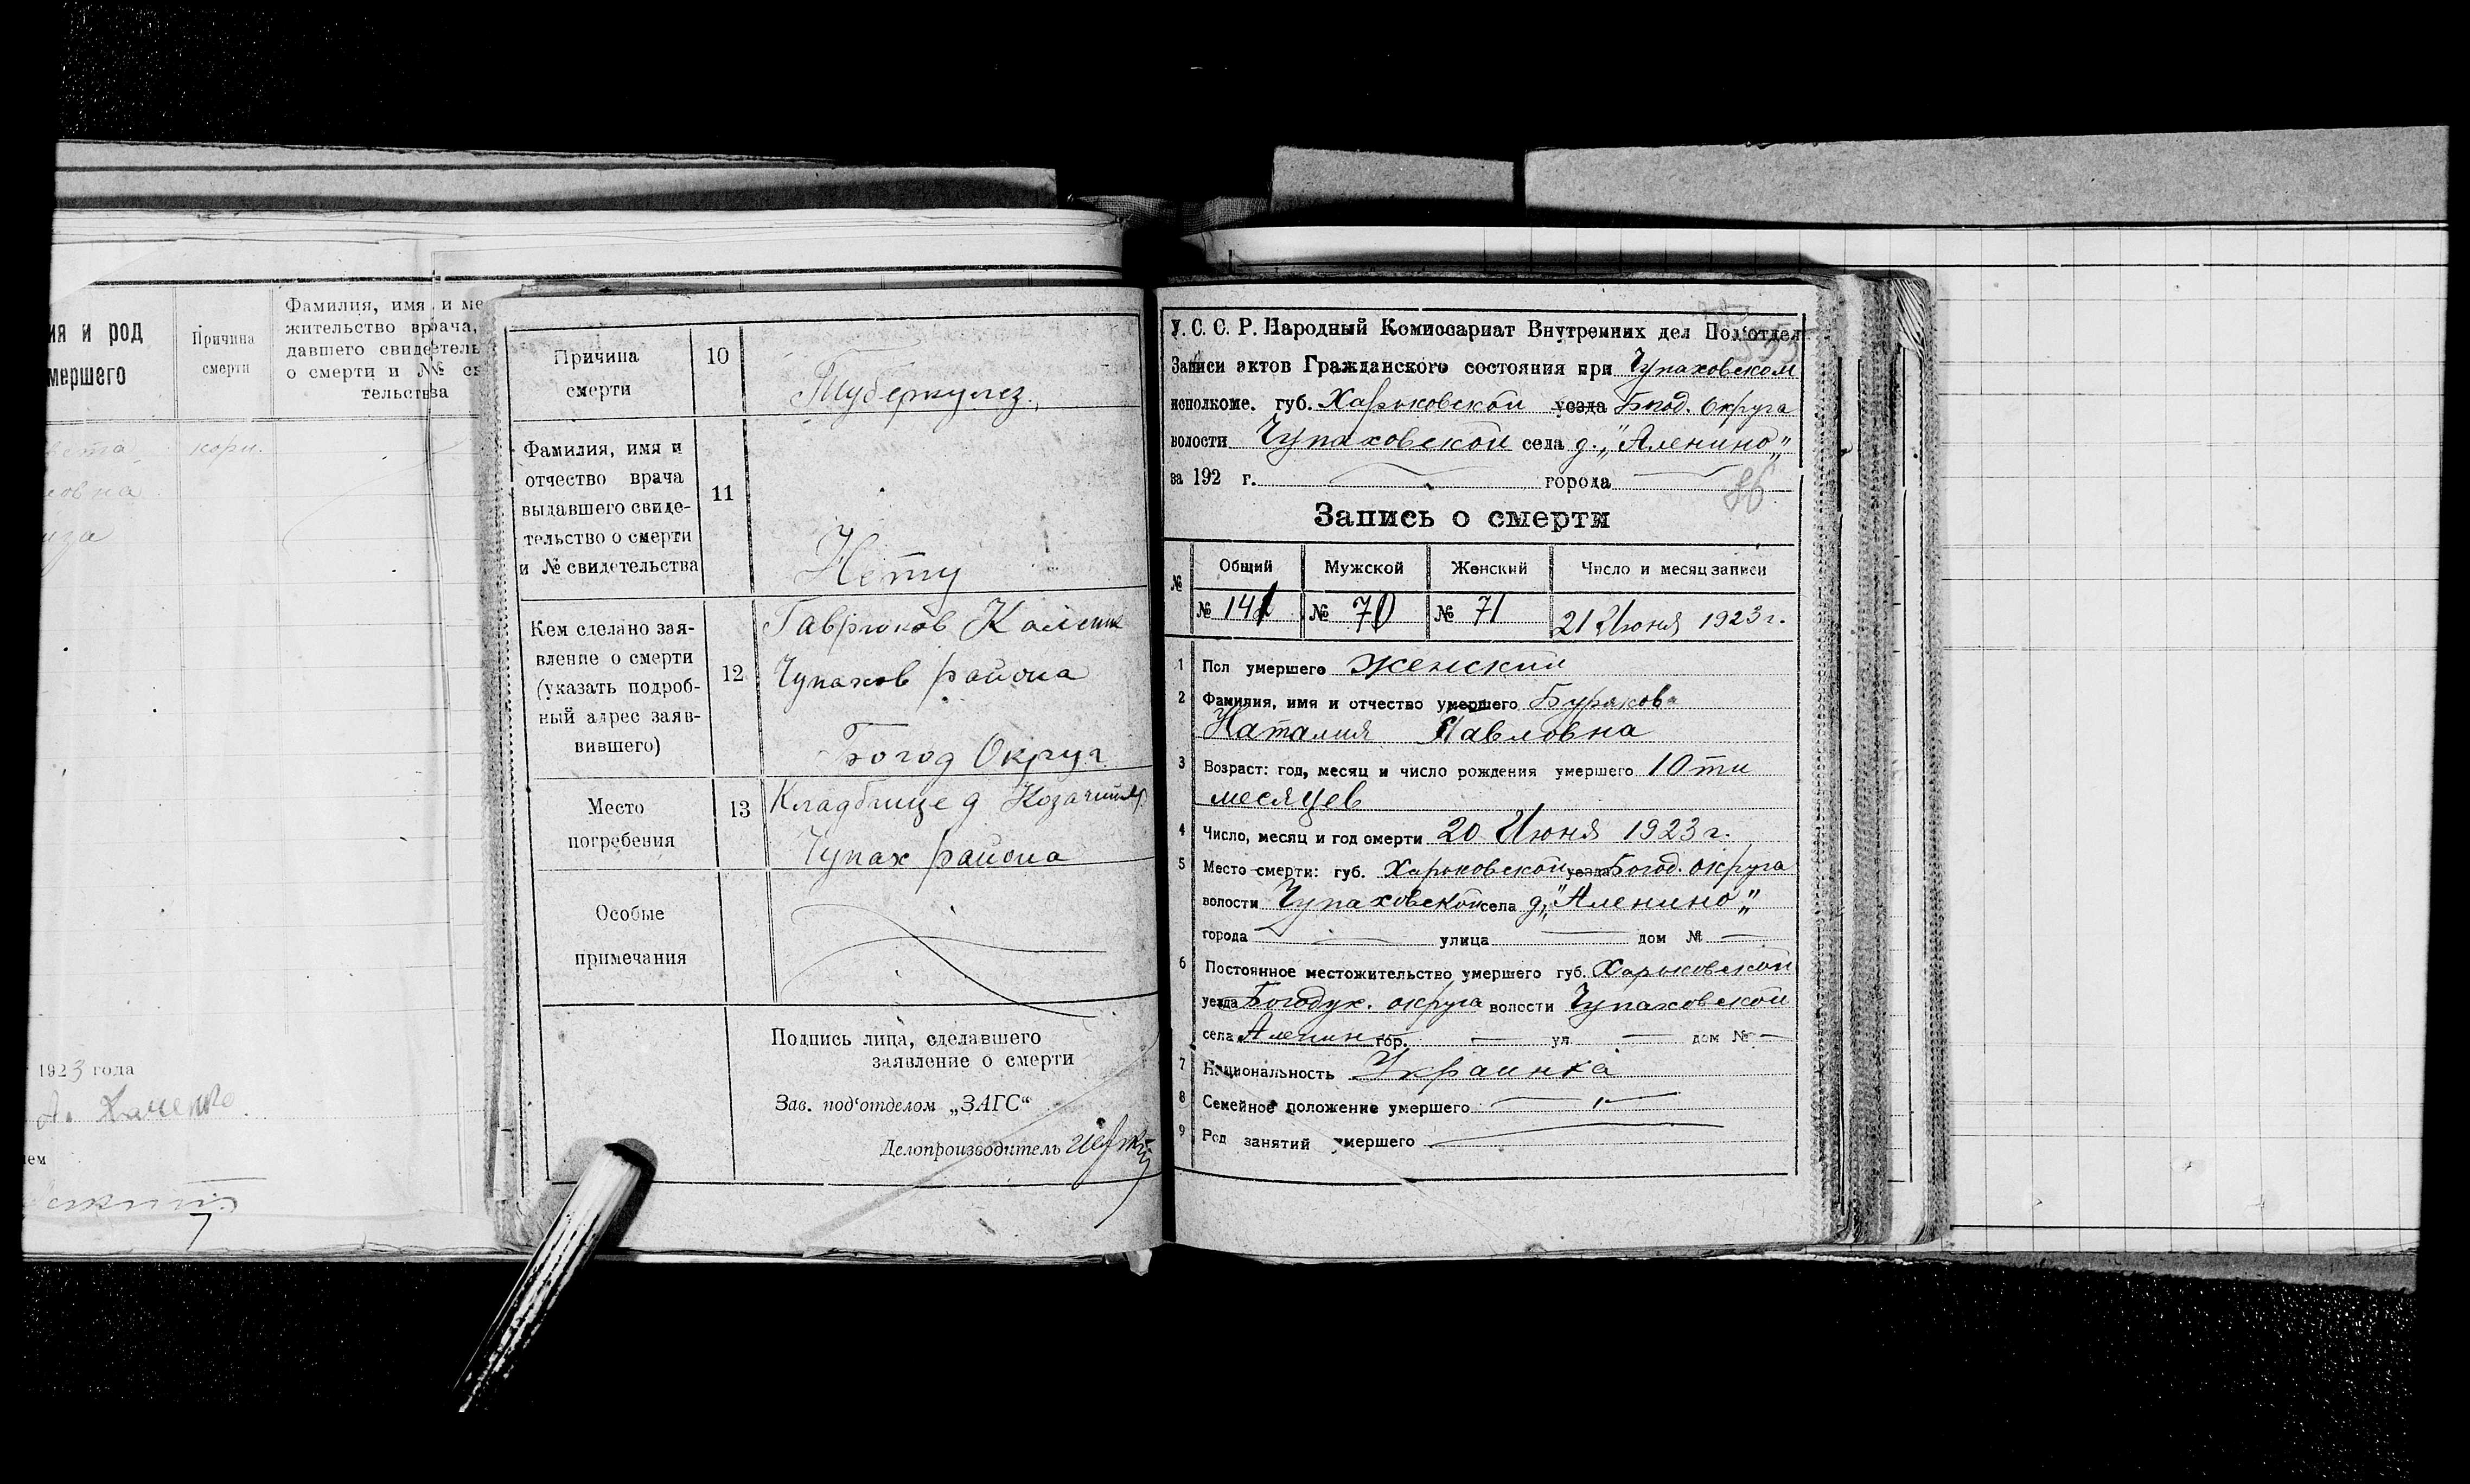 ия и род
мершего
Причина
смерти
Фамилия, имя и ме
жительство врача,
давшего свидетель
о смерти и №№ св
тельства
вета
корн.
овна
1923 года
ем
Причина
смерти
10
Туберкулез.
Фамилия, имя и
отчество врача
выдавшего свиде-
тельство о смерти
и № свидетельства
11
Нету
Кем сделано зая-
вление о смерти
(указать подроб-
ный адрес заяв-
вившего)
12
Гаврюков
Чупахов района
Богод Округ
Место
погребения
13
Кладбище д
Чупах района
Особые
примечания
Подпись лица, сделавшего
заявление о смерти
Зав. под‘отделом „ЗАГС“
Делопроизводитель
У. С. С. Р. Народный Комиссариат Внутренних дел Под‘отдел
Записи актов Гражданского состояния при Чупаховском
исполкоме. губ. Харьковской уезда Богод. Округа
волости Чупаховской села д. „Аленино„
за 192 г. города
86
Запись о смерти
№ Общий Мужской Женский Число и месяц записи
№ 141 № 70 № 71 21 Июня 1923 г.
1 Пол умершего женский
2 Фамилия, имя и отчество умершего Буракова
Наталия Павловна
3 Возраст: год, месяц и число рождения умершего 10 ти
месяцев
4 Число, месяц и год смерти 20 Июня 1923 г.
5 Место смерти: губ. Харьковской уезда Богод. округа
волости Чупаховской села д. „Аленино„
города — улица — дом № —
6 Постоянное местожительство умершего губ. Харьковской
уезда Богодух. округа волости Чупаховской
села Аленин гор. — ул. — дом № —
7 Национальность Украинка
8 Семейное положение умершего —
9 Род занятий умершего —